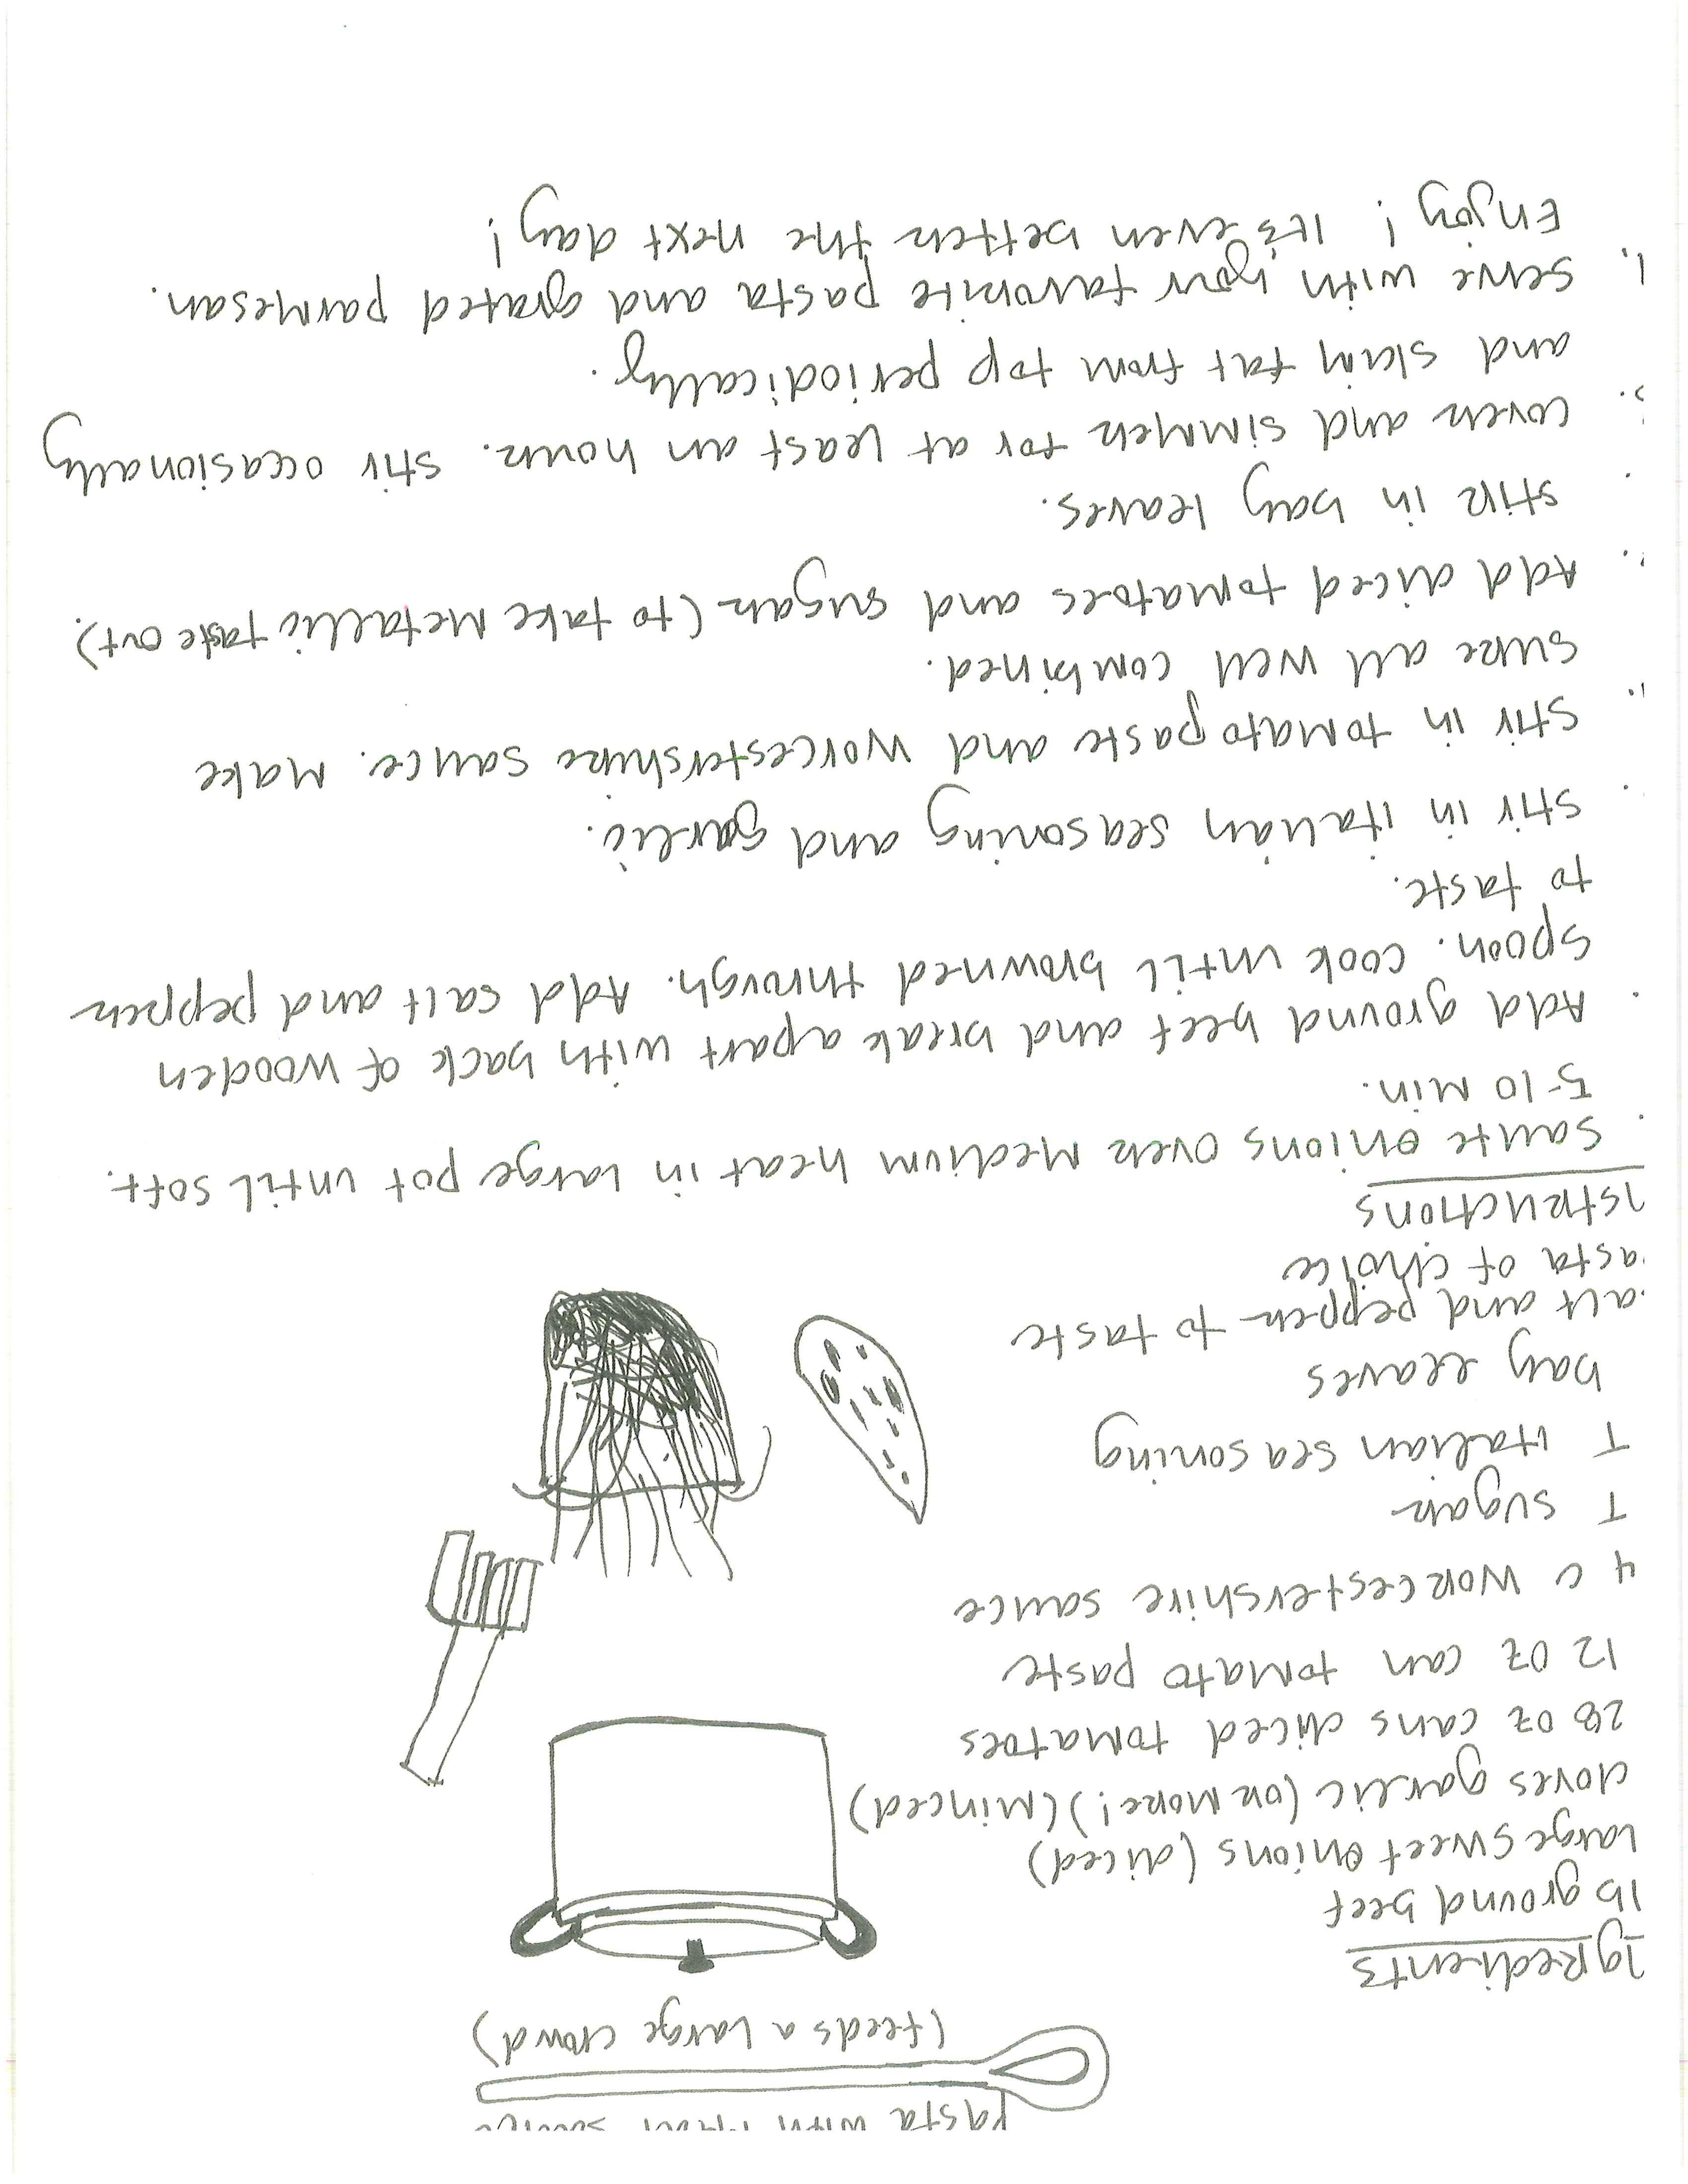 Pasta with Meat sauce
(feeds a large crowd)
ngredients
lb ground beef
Large sweet onions (diced)
cloves garlic (or more!) (Minced)
28 oz cans diced tomatoes
12 oz can tomato paste
4 c Worcestershire sauce
T sugar
T Italian seasoning
bay leaves
alt and pepper to taste
asta of choice
nstructions
. Saute onions over Medium heat in large pot until soft.
5-10 Min.
. Add ground beef and break apart with back of wooden
spoon. Cook until browned through. Add salt and pepper
to taste.
. Stir in Italian seasoning and garlic.
. Stir in tomato paste and Worcestershire sauce. Make
sure all well combined.
. Add diced tomatoes and sugar (to take Metallic taste out).
. Stir in bay leaves.
. Cover and simmer for at least an hour. Stir occasionally
and skim fat from top periodically.
. Serve with your favorite pasta and grated parmesan.
Enjoy! It's even better the next day!